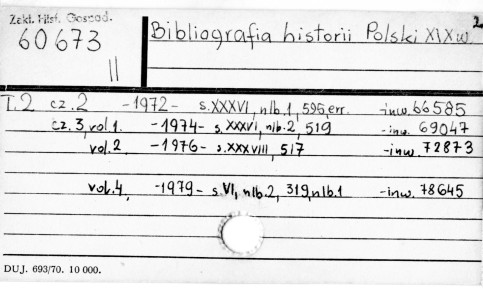 Zakł. Hist. Gospod.
60673
II
2
Bibliografia historii Polski XIX w.
T.2 cz.2 -1972- s.XXXVI, nlb.1, 595, err. -inw. 66585
cz.3, vol.1. -1974- s.XXXVI, nlb.2, 519 -inw. 69047
vol.2 -1976- s.XXXVIII, 517 -inw. 72873
vol.4, -1979- s.VI, nlb.2, 319, nlb.1 -inw. 78645
DUJ. 693/70. 10 000.